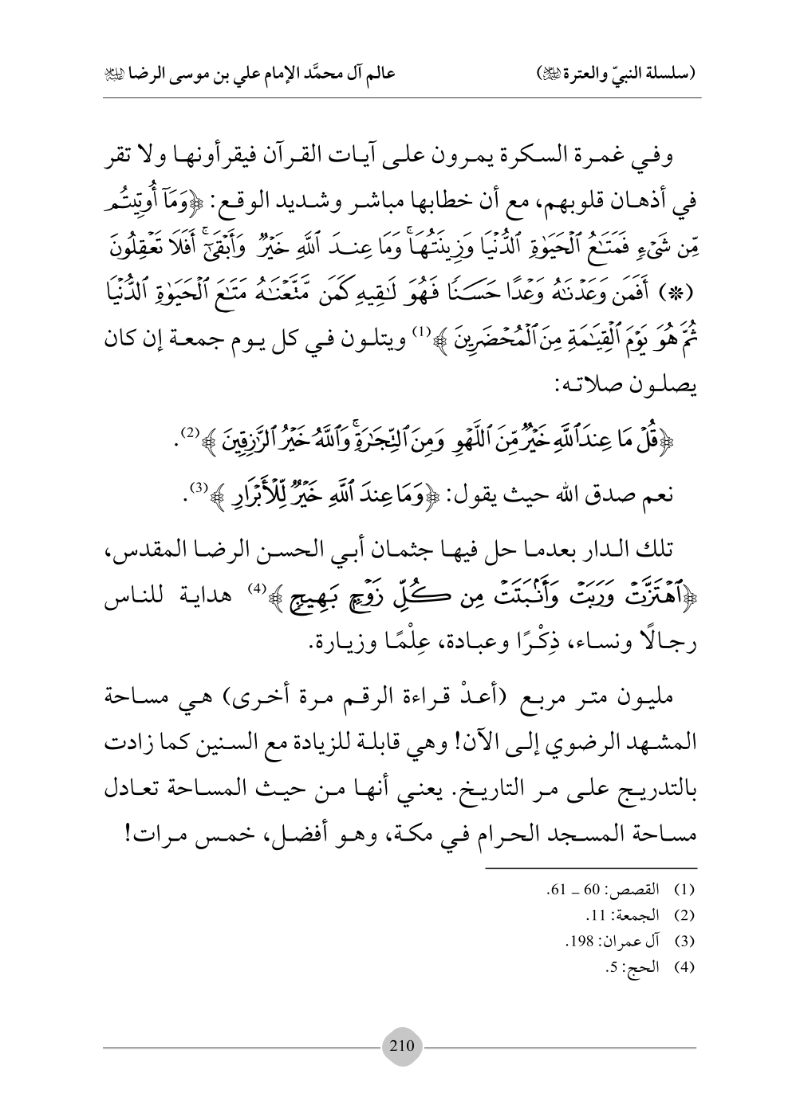 (سلسلة النبيّ والعترة ﷺ) عالم آل محمَّد الإمام علي بن موسى الرضا
وفي غمرة السكرة يمرون على آيات القرآن فيقرأونها ولا تقر
في أذهان قلوبهم، مع أن خطابها مباشر وشديد الوقع: ﴿وَمَآ أُوتِيتُم
مِّن شَىْءٍ فَمَتَٰعُ ٱلْحَيَوٰةِ ٱلدُّنْيَا وَزِينَتُهَا ۚ وَمَا عِندَ ٱللَّهِ خَيْرٌ وَأَبْقَىٰٓ ۚ أَفَلَا تَعْقِلُونَ
(*) أَفَمَن وَعَدْنَٰهُ وَعْدًا حَسَنًا فَهُوَ لَٰقِيهِ كَمَن مَّتَّعْنَٰهُ مَتَٰعَ ٱلْحَيَوٰةِ ٱلدُّنْيَا
ثُمَّ هُوَ يَوْمَ ٱلْقِيَٰمَةِ مِنَ ٱلْمُحْضَرِينَ﴾(1) ويتلون في كل يوم جمعة إن كان
يصلون صلاته:
﴿قُلْ مَا عِندَ ٱللَّهِ خَيْرٌ مِّنَ ٱللَّهْوِ وَمِنَ ٱلتِّجَٰرَةِ ۚ وَٱللَّهُ خَيْرُ ٱلرَّٰزِقِينَ﴾(2).
نعم صدق الله حيث يقول: ﴿وَمَا عِندَ ٱللَّهِ خَيْرٌ لِّلْأَبْرَارِ﴾(3).
تلك الدار بعدما حل فيها جثمان أبي الحسن الرضا المقدس،
﴿ٱهْتَزَّتْ وَرَبَتْ وَأَنۢبَتَتْ مِن كُلِّ زَوْجٍۭ بَهِيجٍ﴾(4) هداية للناس
رجالًا ونساء، ذِكْرًا وعبادة، عِلْمًا وزيارة.
مليون متر مربع (أعدْ قراءة الرقم مرة أخرى) هي مساحة
المشهد الرضوي إلى الآن! وهي قابلة للزيادة مع السنين كما زادت
بالتدريج على مر التاريخ. يعني أنها من حيث المساحة تعادل
مساحة المسجد الحرام في مكة، وهو أفضل، خمس مرات!
(1) القصص: 60 ــ 61.
(2) الجمعة: 11.
(3) آل عمران: 198.
(4) الحج: 5.
210